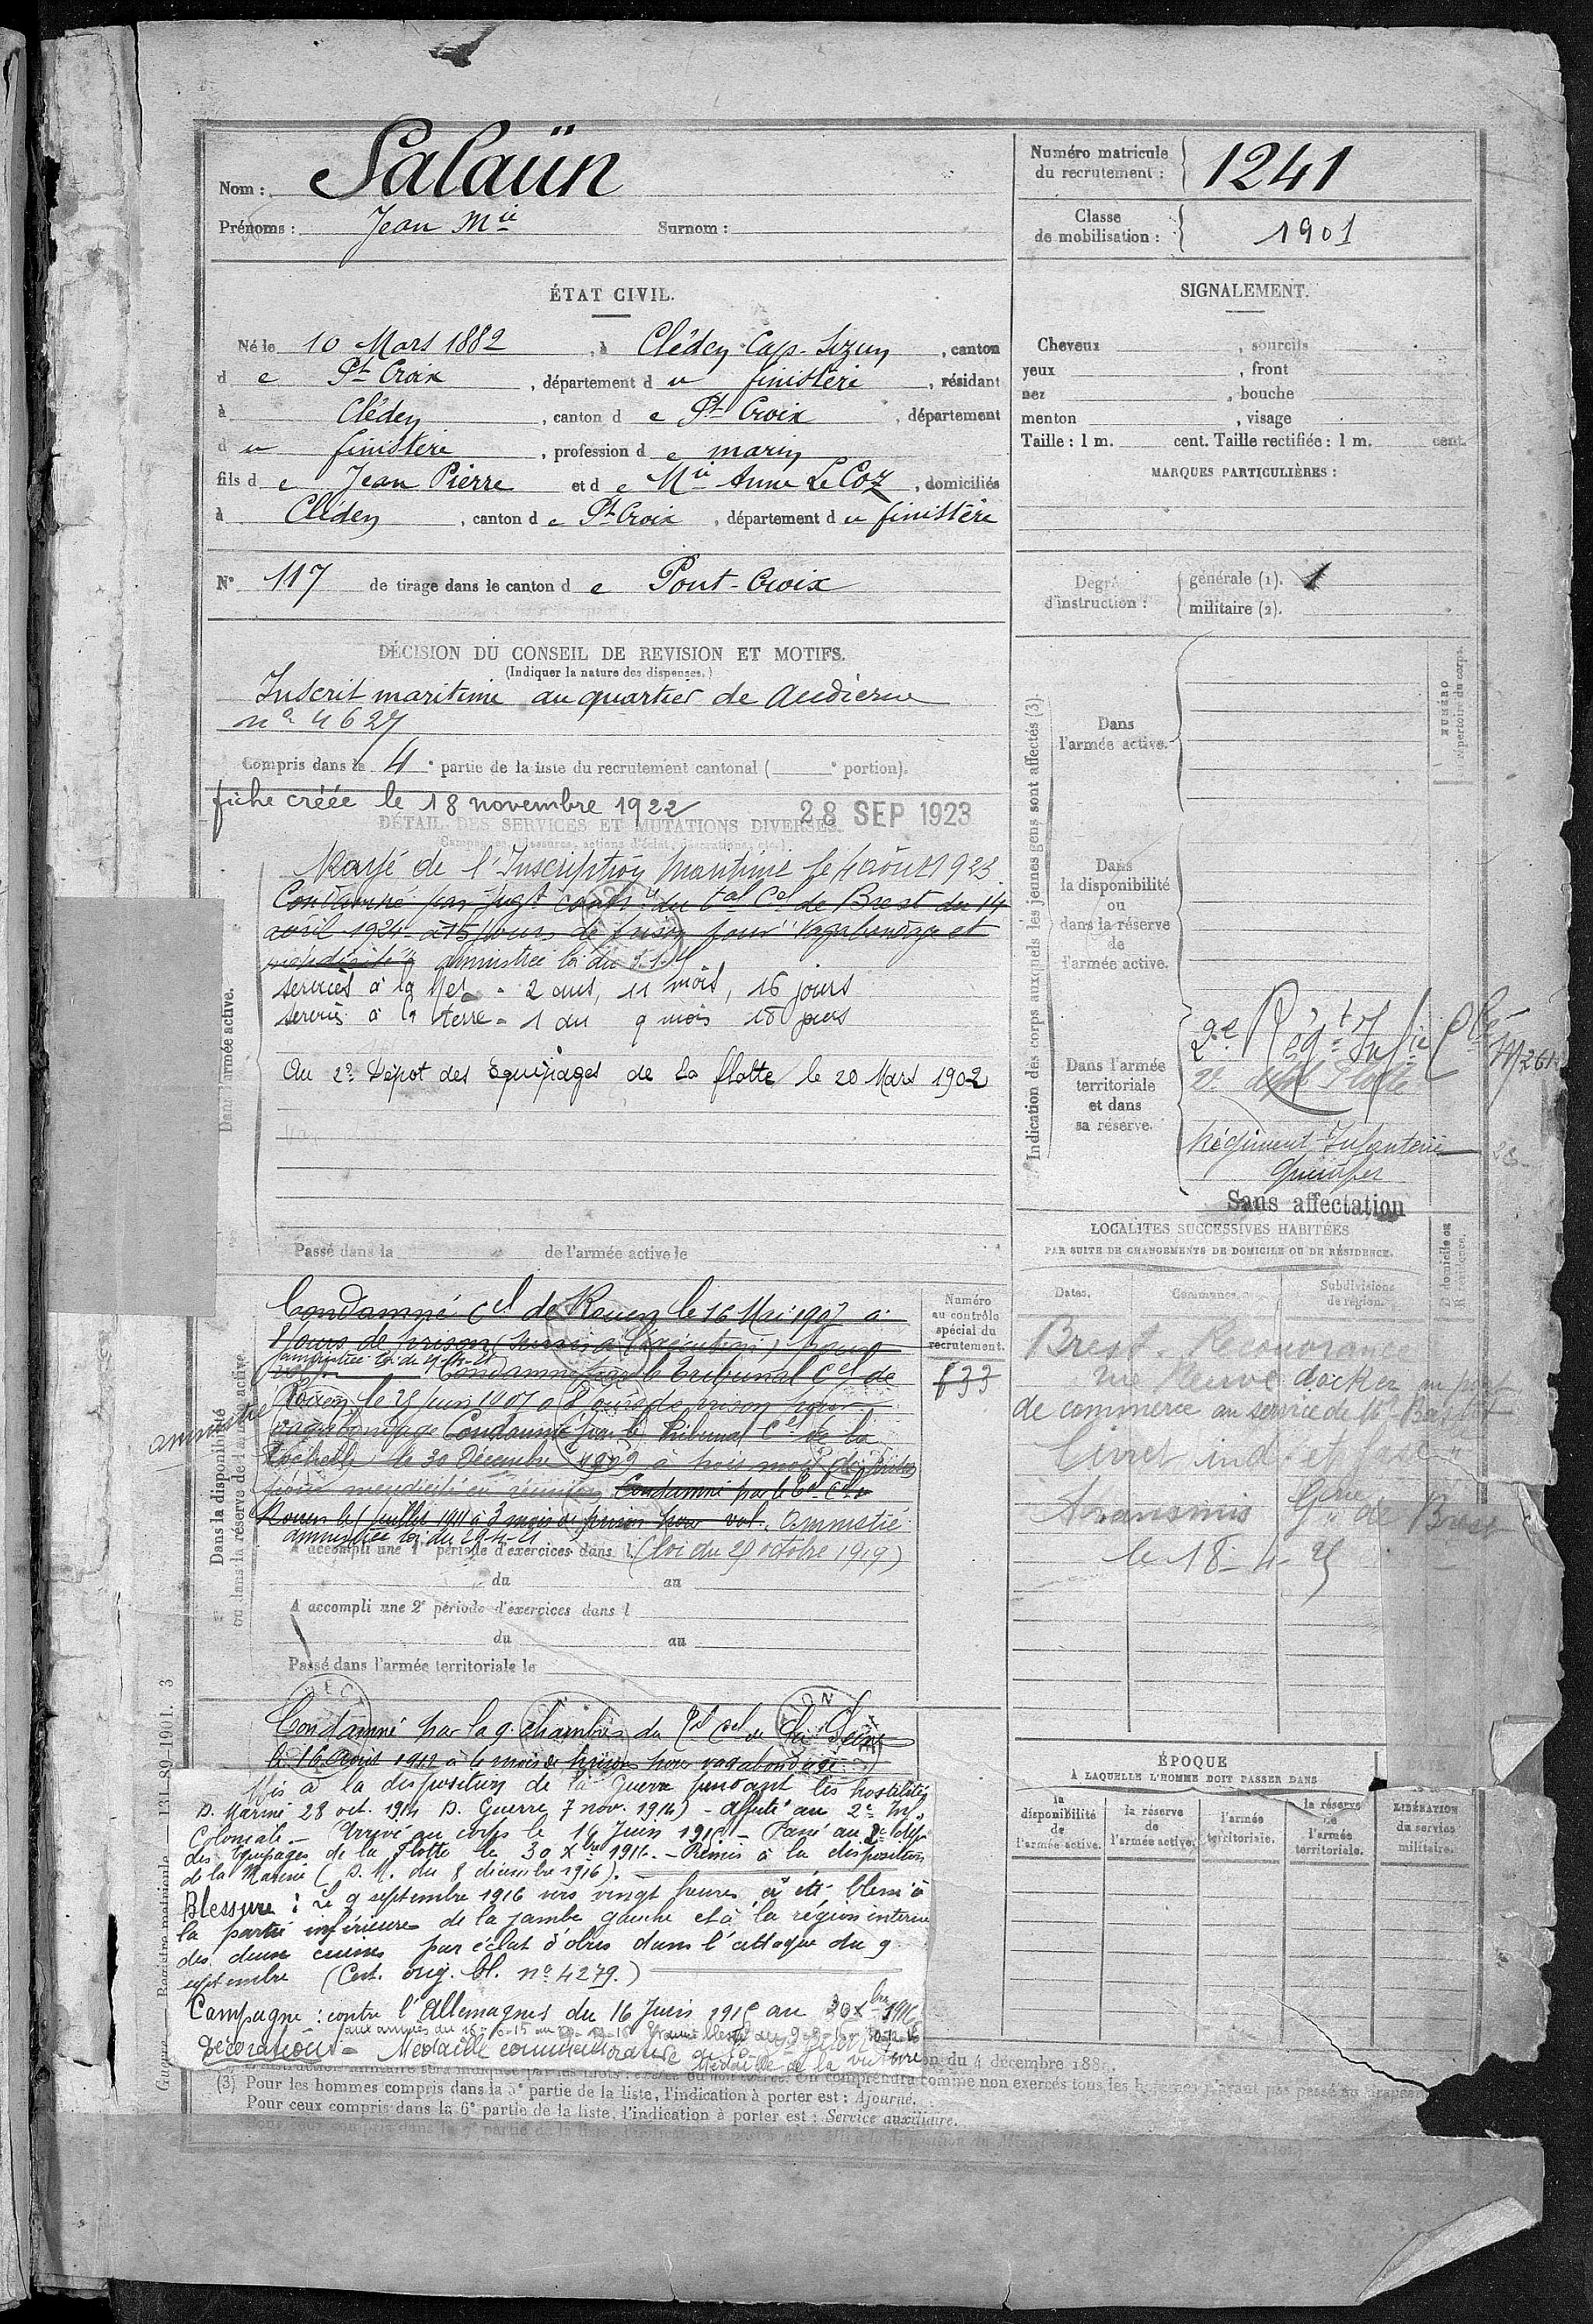 Nom : Salaün
Prénoms : Jean Mie Surnom :
Numéro matricule du recrutement : 1241
Classe de mobilisation : 1901
ÉTAT CIVIL.
Né le 10 Mars 1882, à Cléden Cap-Sizun, canton
de Pt Croix, département du finistère, résidant
à Cléden, canton de Pt Croix, département
du finistère, profession de marin
fils de Jean Pierre et de Mie Anne Le Coz, domiciliés
à Cléden, canton de Pt Croix, département du finistère
N° 117 de tirage dans le canton de Pont-Croix
SIGNALEMENT.
Cheveux , sourcils
yeux , front
nez , bouche
menton , visage
Taille : 1 m. cent. Taille rectifiée : 1 m. cent.
MARQUES PARTICULIÈRES :
Degré d'instruction : générale (1). 1
militaire (2).
DÉCISION DU CONSEIL DE REVISION ET MOTIFS.
(Indiquer la nature des dispenses.)
Inscrit maritime au quartier de Audierne
n° 4627
Compris dans la 4e partie de la liste du recrutement cantonal ( e portion).
fiche créée le 18 novembre 1922 28 SEP 1923
DÉTAIL DES SERVICES ET MUTATIONS DIVERSES.
Rayé de l'Inscription Maritime le 4 août 1923
Condamné par jugt du tal Cel de Brest du 14
avril 1924 à 15 jours de prison pour vagabondage et
mendicité
services à la Mer - 2 ans, 11 mois, 16 jours
services à la terre - 1 an 9 mois 18 jours
Au 2e Dépot des équipages de La flotte le 20 Mars 1902
Passé dans la de l'armée active le
Dans l'armée active.
Condamné Cel de Rouen le 16 Mai 1907 à
8 jours de prison (sursis à l'exécution) pour
Condamné par le Tribunal Cel de
Rouen le 25 Juin 1907 à 8 jours de prison pour
vagabondage Condamné par le Tribunal Cel de la
Rochelle, le 30 Décembre 1909 à trois mois de prison
pour mendicité en réunion Condamné par le Tal Cel de
Rouen le 1 Juillet 1911 à 3 mois de prison pour vol. Amnistié
(loi du 29 octobre 1919)
amnistié
Dans la disponibilité ou dans la réserve de l'armée active
A accompli une 1re période d'exercices dans l
du au
A accompli une 2e période d'exercices dans l
du au
Passé dans l'armée territoriale le
Numéro au contrôle spécial du recrutement.
633
Condamné par la 9e chambre du Tal Cel de la Seine
le 16 Août 1912 à 4 mois de prison pour vagabondage
Mis à la disposition de la Guerre pendant les hostilités
D. Marine 28 oct. 1914 D. Guerre 7 nov. 1914) - Affecté au 2e Inf.
Coloniale - Arrivé au corps le 16 Juin 1915 - Passé au 2e Dépôt
des équipages de la flotte le 30 Xbre 1916. - Remis à la disposition
de la Marine (D. M. du 8 décembre 1916).
Blessure : Le 9 septembre 1916 vers vingt heures a été blessé à
la partie inférieure de la jambe gauche et à la région interne
des deux cuisses par éclat d'obus dans l'attaque du 9
septembre (Cert. orig. bl. n° 4279.)
Campagne : contre l'Allemagne du 16 Juin 1915 au 30 Xbre 1916
Décorations - Médaille commémorative
Médaille de la victoire
Indication des corps auxquels les jeunes gens sont affectés (3).
Dans l'armée active.
Dans la disponibilité ou dans la réserve de l'armée active.
Dans l'armée territoriale et dans sa réserve.
2e Régt Infie Cle
2e dépôt Flotte
Régiment Infanterie
Quimper
Sans affectation
NUMÉRO
Répertoire du corps.
LOCALITÉS SUCCESSIVES HABITÉES
PAR SUITE DE CHANGEMENTS DE DOMICILE OU DE RÉSIDENCE.
Dates. Communes. Subdivisions de région.
Brest. Recouvrance
rue Neuve docker au port
de commerce au service de
Livret ind. et fasc.
transmis Gie de Brest
le 18-4-25
ÉPOQUE
À LAQUELLE L'HOMME DOIT PASSER DANS
la disponibilité de l'armée active.
la réserve de l'armée active.
l'armée territoriale.
la réserve de l'armée territoriale.
LIBÉRATION du service militaire.
(3) Pour les hommes compris dans la 5e partie de la liste, l'indication à porter est : Ajourné.
Pour ceux compris dans la 6e partie de la liste, l'indication à porter est : Service auxiliaire.